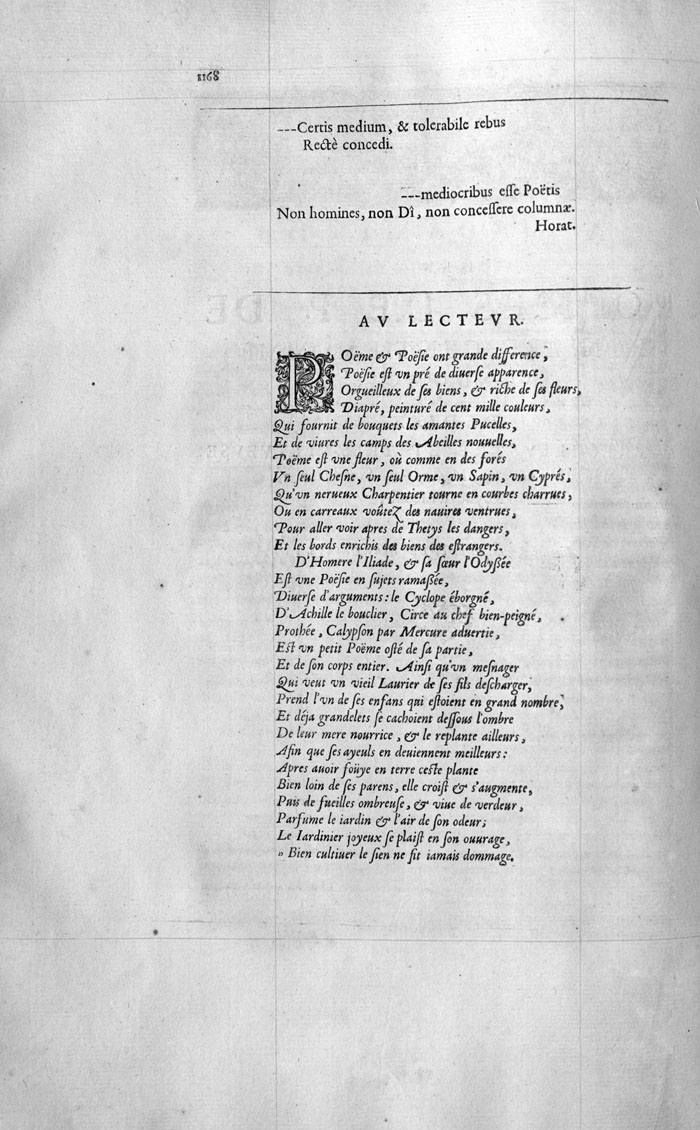 1168
---Certis medium, & tolerabile rebus
Rectè concedi.
---mediocribus eſſe Poëtis
Non homines, non Dî, non conceſſere columnæ.
Horat.
AV LECTEVR.
POëme & Poëſie ont grande difference,
Poëſie eſt vn pré de diuerſe apparence,
Orgueilleux de ſes biens, & riche de ſes fleurs,
Diapré, peinturé de cent mille couleurs,
Qui fournit de bouquets les amantes Pucelles,
Et de viures les camps des Abeilles nouuelles,
Poëme eſt vne fleur, où comme en des foréś
Vn ſeul Cheſne, vn ſeul Orme, vn Sapin, vn Cyprés,
Qu'vn nerueux Charpentier tourne en courbes charrues,
Ou en carreaux voûtez des nauires ventrues,
Pour aller voir apres de Thetys les dangers,
Et les bords enrichis des biens des eſtrangers.
D'Homere l'Iliade, & ſa ſœur l'Odyßée
Eſt vne Poëſie en ſujets ramaßée,
Diuerſe d'arguments: le Cyclope éborgné,
D'Achille le bouclier, Circe au chef bien-peigné,
Prothée, Calypſon par Mercure aduertie,
Eſt vn petit Poëme oſté de ſa partie,
Et de ſon corps entier. Ainſi qu'vn meſnager
Qui veut vn vieil Laurier de ſes fils deſcharger,
Prend l'vn de ſes enfans qui eſtoient en grand nombre,
Et déja grandelets ſe cachoient deſſous l'ombre
De leur mere nourrice, & le replante ailleurs,
Afin que ſes ayeuls en deuiennent meilleurs:
Apres auoir foüye en terre ceſte plante
Bien loin de ſes parens, elle croiſt & s'augmente,
Puis de fueilles ombreuſe, & viue de verdeur,
Parfume le iardin & l'air de ſon odeur;
Le Iardinier joyeux ſe plaiſt en ſon ouurage,
» Bien cultiuer le ſien ne fit iamais dommage.